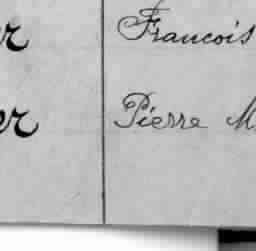 er Francois
er Pierre M